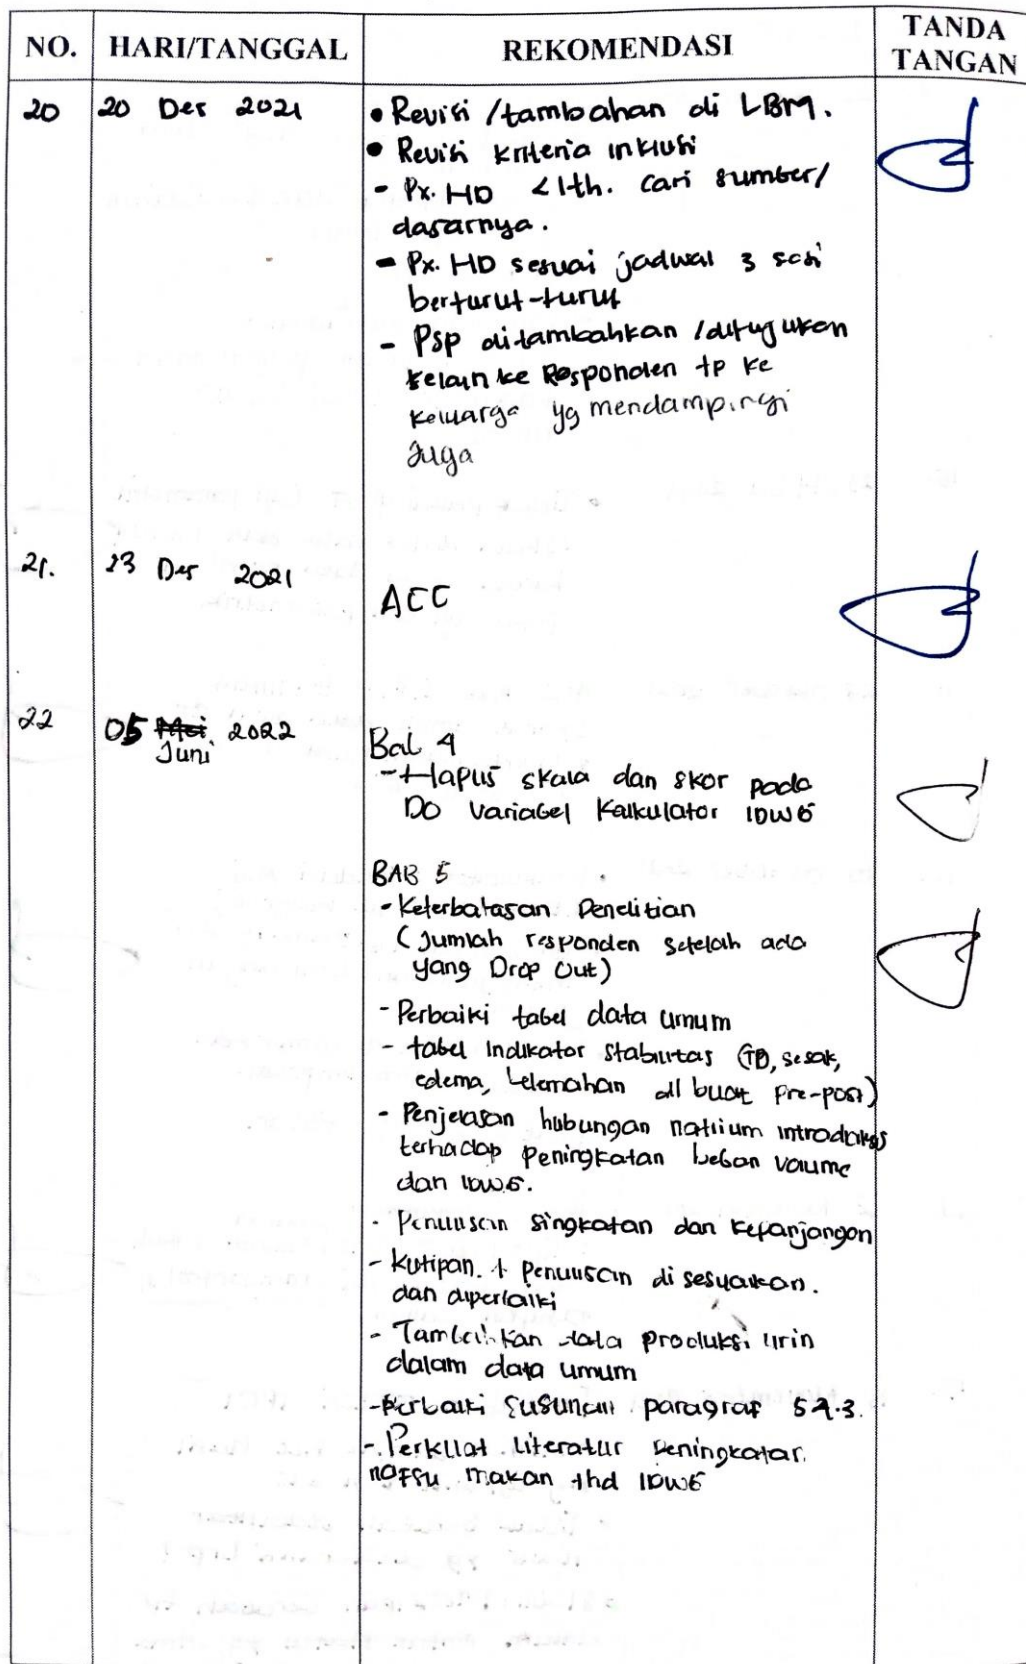 NO. HARI/TANGGAL REKOMENDASI TANDA TANGAN
20 20 Des 2021 • Revisi /tambahan di LBM.
• Revisi kriteria inklusi
- Px. HD <1th. Cari sumber/
dasarnya.
- Px. HD sesuai jadwal 3 sesi
berturut-turut
- Psp ditambahkan /ditujukan
selain ke Responden tp ke
keluarga yg mendampingi
Juga
21. 23 Des 2021 ACC
22 05 Mei 2022
Juni
Bab 4
- Hapus skala dan skor pada
DO Variabel Kalkulator IDWG
BAB 5
- Keterbatasan Penelitian
(Jumlah responden setelah ada
yang Drop Out)
- Perbaiki tabel data umum
- tabel Indikator Stabilitas (TD, sesak,
edema, kelemahan dll buat Pre-post)
- Penjelasan hubungan natrium
terhadap peningkatan beban volume
dan IDWG.
- Penulisan singkatan dan kepanjangan
- Kutipan + penulisan di sesuaikan.
dan diperbaiki
- Tambahkan data produksi urin
dalam data umum
- Perbaiki susunan paragraf 5.4.3.
- Perkuat Literatur Peningkatan
naffsu makan thd IDWG